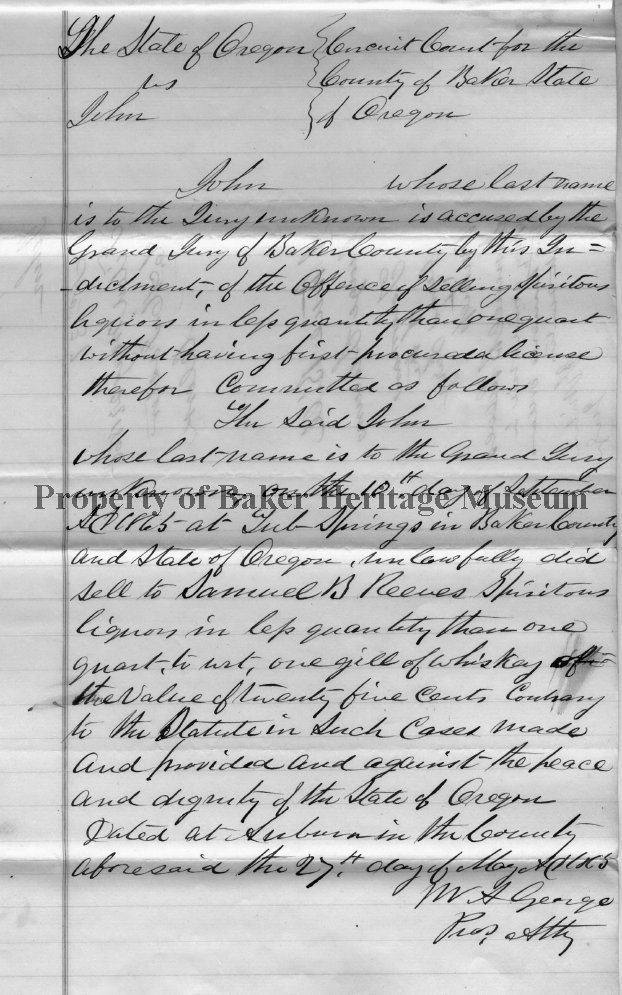 The State of Oregon } Circuit Court for the
vs } County of Baker State
John } of Oregon
John whose last name
is to the Jury unknown is accused by the
Grand Jury of Baker County by this In=
-dictment, of the Offence of Selling Spiritous
liquors in less quantity than one quart
without having first procured a license
therefor Committed as follows
The Said John
whose last name is to the Grand Jury
unknown on the 10th day of September
Property of Baker Heritage Museum
AD 1865 at Tub Springs in Baker County
and State of Oregon, unlawfully did
sell to Samuel B Reeves Spiritous
liquors in less quantity than one
quart, to wit, one gill of whiskey of
the Value of twenty five Cents Contrary
to the Statute in Such Cases made
and provided and against the peace
and dignity of the State of Oregon
Dated at Auburn in the County
aforesaid the 27th day of May AD
W G George
Pros Atty